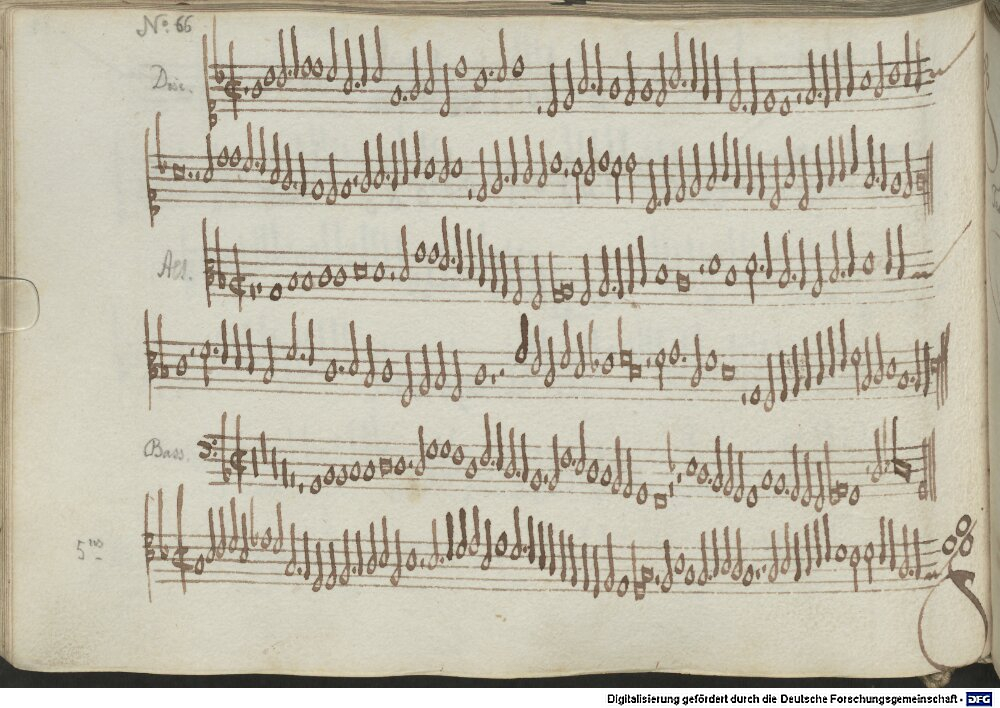 No. 66
Disc.
Alt.
Bass.
5tus
Digitalisierung gefördert durch die Deutsche Forschungsgemeinschaft - DFG